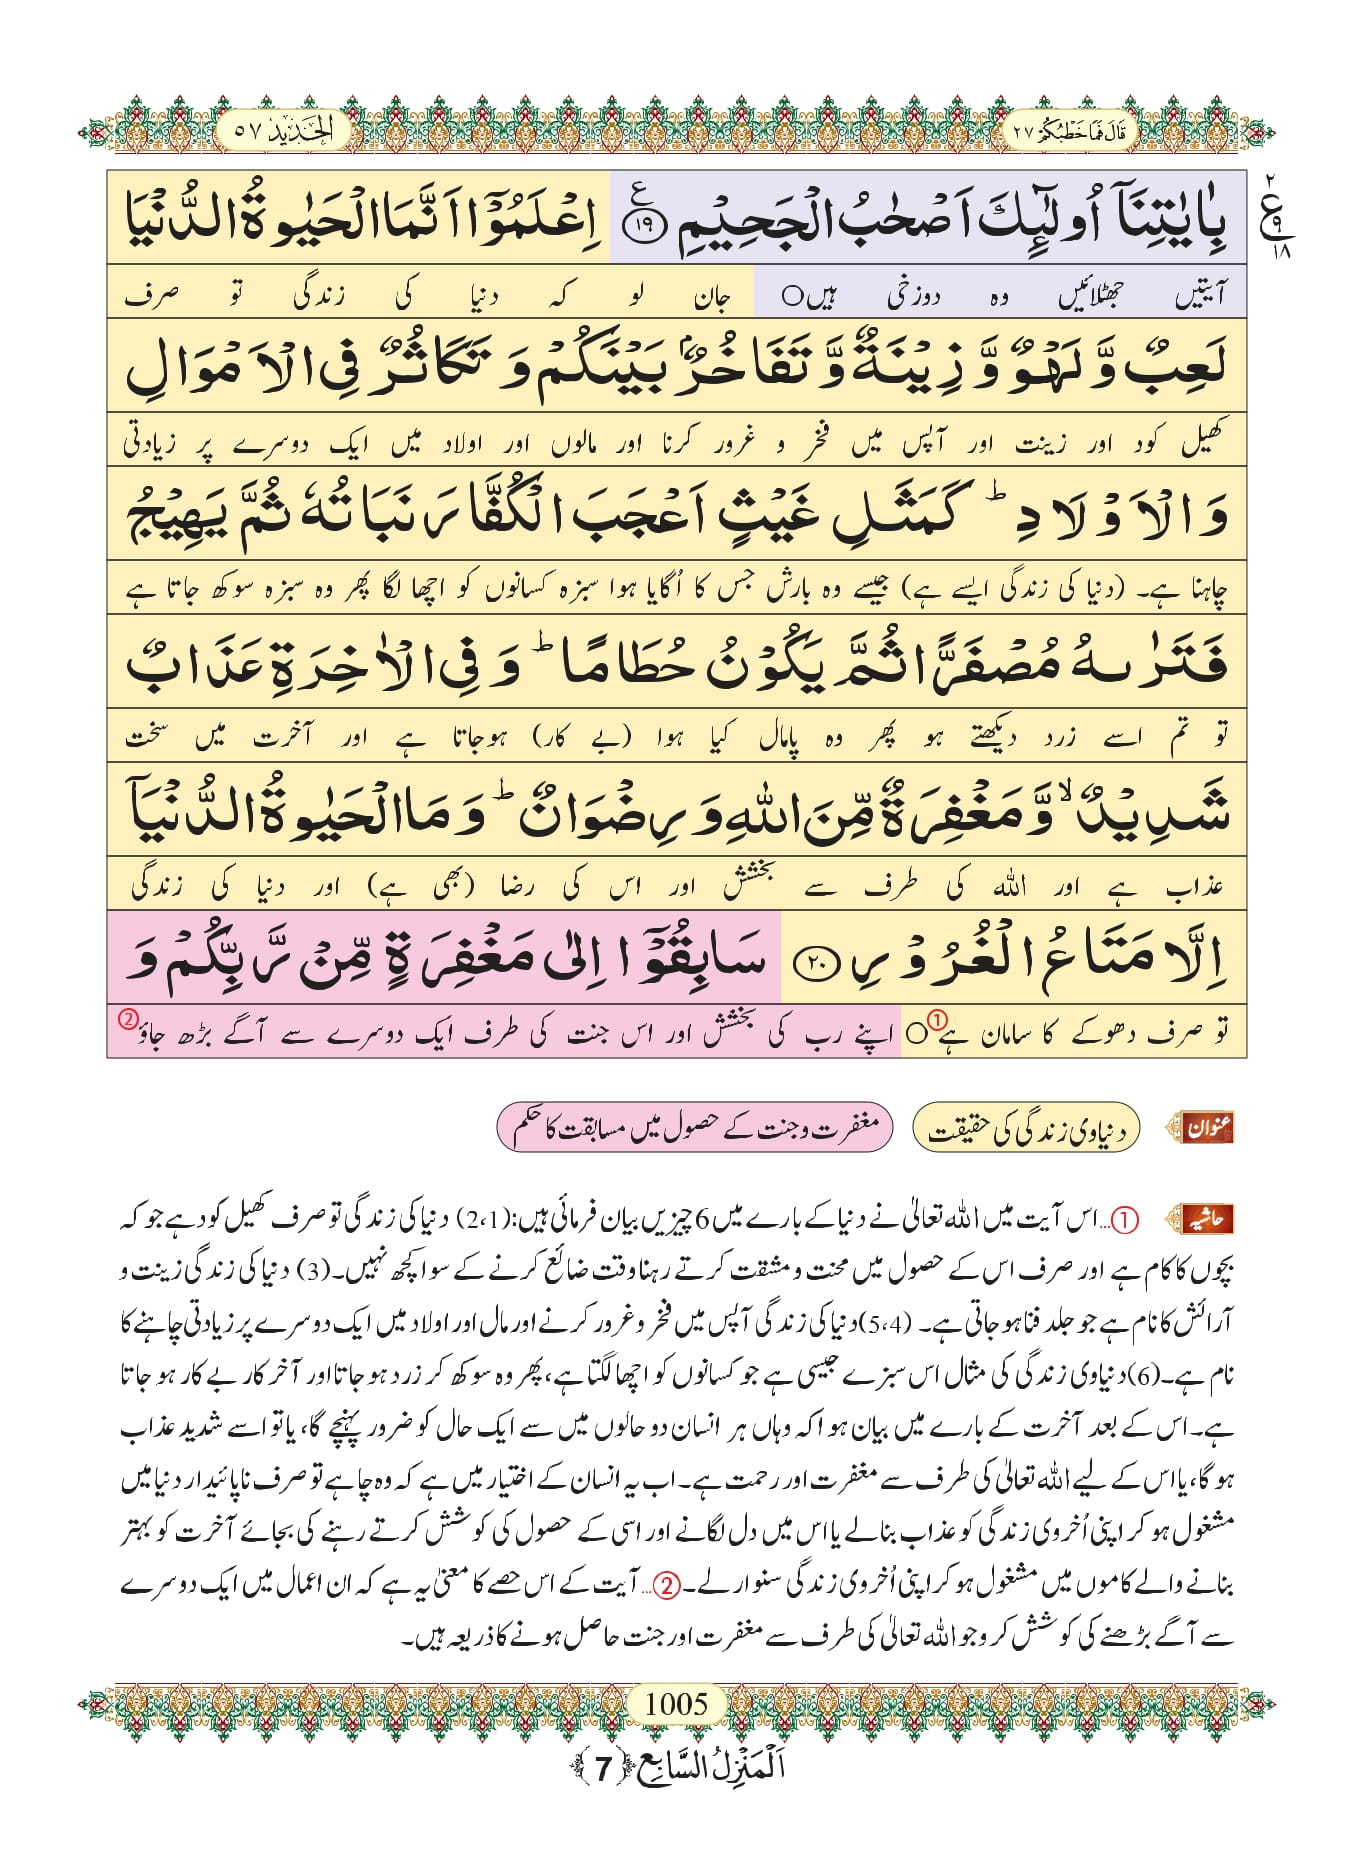 قَالَ فَمَا خَطْبُكُمْ ٢٧
الْحَدِيْد ٥٧
بِاٰيٰتِنَاۤ اُولٰٓىِٕكَ اَصْحٰبُ الْجَحِيْمِ ﴿١٩﴾ ع اِعْلَمُوْۤا اَنَّمَا الْحَيٰوةُ الدُّنْيَا
٢
ع
٩
١٨
آیتیں جھٹلائیں وہ دوزخی ہیں○ جان لو کہ دنیا کی زندگی تو صرف
لَعِبٌ وَّ لَهْوٌ وَّ زِیْنَةٌ وَّ تَفَاخُرٌۢ بَیْنَكُمْ وَ تَكَاثُرٌ فِی الْاَمْوَالِ
کھیل کود اور زینت اور آپس میں فخر و غرور کرنا اور مالوں اور اولاد میں ایک دوسرے پر زیادتی
وَ الْاَوْلَادِؕ كَمَثَلِ غَیْثٍ اَعْجَبَ الْكُفَّارَ نَبَاتُهٗ ثُمَّ یَهِیْجُ
چاہنا ہے۔ (دنیا کی زندگی ایسے ہے) جیسے وہ بارش جس کا اُگایا ہوا سبزہ کسانوں کو اچھا لگا پھر وہ سبزہ سوکھ جاتا ہے
فَتَرٰىهُ مُصْفَرًّا ثُمَّ یَكُوْنُ حُطَامًاؕ وَ فِی الْاٰخِرَةِ عَذَابٌ
تو تم اسے زرد دیکھتے ہو پھر وہ پامال کیا ہوا (بے کار) ہوجاتا ہے اور آخرت میں سخت
شَدِیْدٌۙ وَّ مَغْفِرَةٌ مِّنَ اللّٰهِ وَ رِضْوَانٌؕ وَ مَا الْحَیٰوةُ الدُّنْیَاۤ
عذاب ہے اور اللہ کی طرف سے بخشش اور اس کی رضا (بھی ہے) اور دنیا کی زندگی
اِلَّا مَتَاعُ الْغُرُوْرِ ﴿٢٠﴾ سَابِقُوْۤا اِلٰى مَغْفِرَةٍ مِّنْ رَّبِّكُمْ وَ
تو صرف دھوکے کا سامان ہے①○ اپنے رب کی بخشش اور اس جنت کی طرف ایک دوسرے سے آگے بڑھ جاؤ②
عنوان دنیاوی زندگی کی حقیقت مغفرت و جنت کے حصول میں مسابقت کا حکم
حاشیہ ①...اس آیت میں اللہ تعالیٰ نے دنیا کے بارے میں 6 چیزیں بیان فرمائی ہیں:(2،1) دنیا کی زندگی تو صرف کھیل کود ہے جو کہ
بچوں کا کام ہے اور صرف اس کے حصول میں محنت و مشقت کرتے رہنا وقت ضائع کرنے کے سوا کچھ نہیں۔(3) دنیا کی زندگی زینت و
آرائش کا نام ہے جو جلد فنا ہو جاتی ہے۔ (5،4)دنیا کی زندگی آپس میں فخر و غرور کرنے اور مال اور اولاد میں ایک دوسرے پر زیادتی چاہنے کا
نام ہے۔(6)دنیاوی زندگی کی مثال اس سبزے جیسی ہے جو کسانوں کو اچھا لگتا ہے، پھر وہ سوکھ کر زرد ہو جاتا اور آخر کار بے کار ہو جاتا
ہے۔ اس کے بعد آخرت کے بارے میں بیان ہوا کہ وہاں ہر انسان دو حالوں میں سے ایک حال کو ضرور پہنچے گا، یا تو اسے شدید عذاب
ہو گا، یا اس کے لیے اللہ تعالیٰ کی طرف سے مغفرت اور رحمت ہے۔ اب یہ انسان کے اختیار میں ہے کہ وہ چاہے تو صرف ناپائیدار دنیا میں
مشغول ہو کر اپنی اُخروی زندگی کو عذاب بنالے یا اس میں دل لگانے اور اسی کے حصول کی کوشش کرتے رہنے کی بجائے آخرت کو بہتر
بنانے والے کاموں میں مشغول ہو کر اپنی اُخروی زندگی سنوار لے۔②...آیت کے اس حصے کا معنیٰ یہ ہے کہ ان اعمال میں ایک دوسرے
سے آگے بڑھنے کی کوشش کرو جو اللہ تعالیٰ کی طرف سے مغفرت اور جنت حاصل ہونے کا ذریعہ ہیں۔
1005
اَلْمَنْزِلُ السَّابِع ﴿7﴾